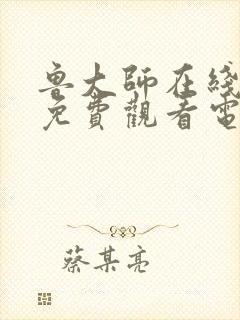 鲁大師在綫
免費觀看電
蔡某亮